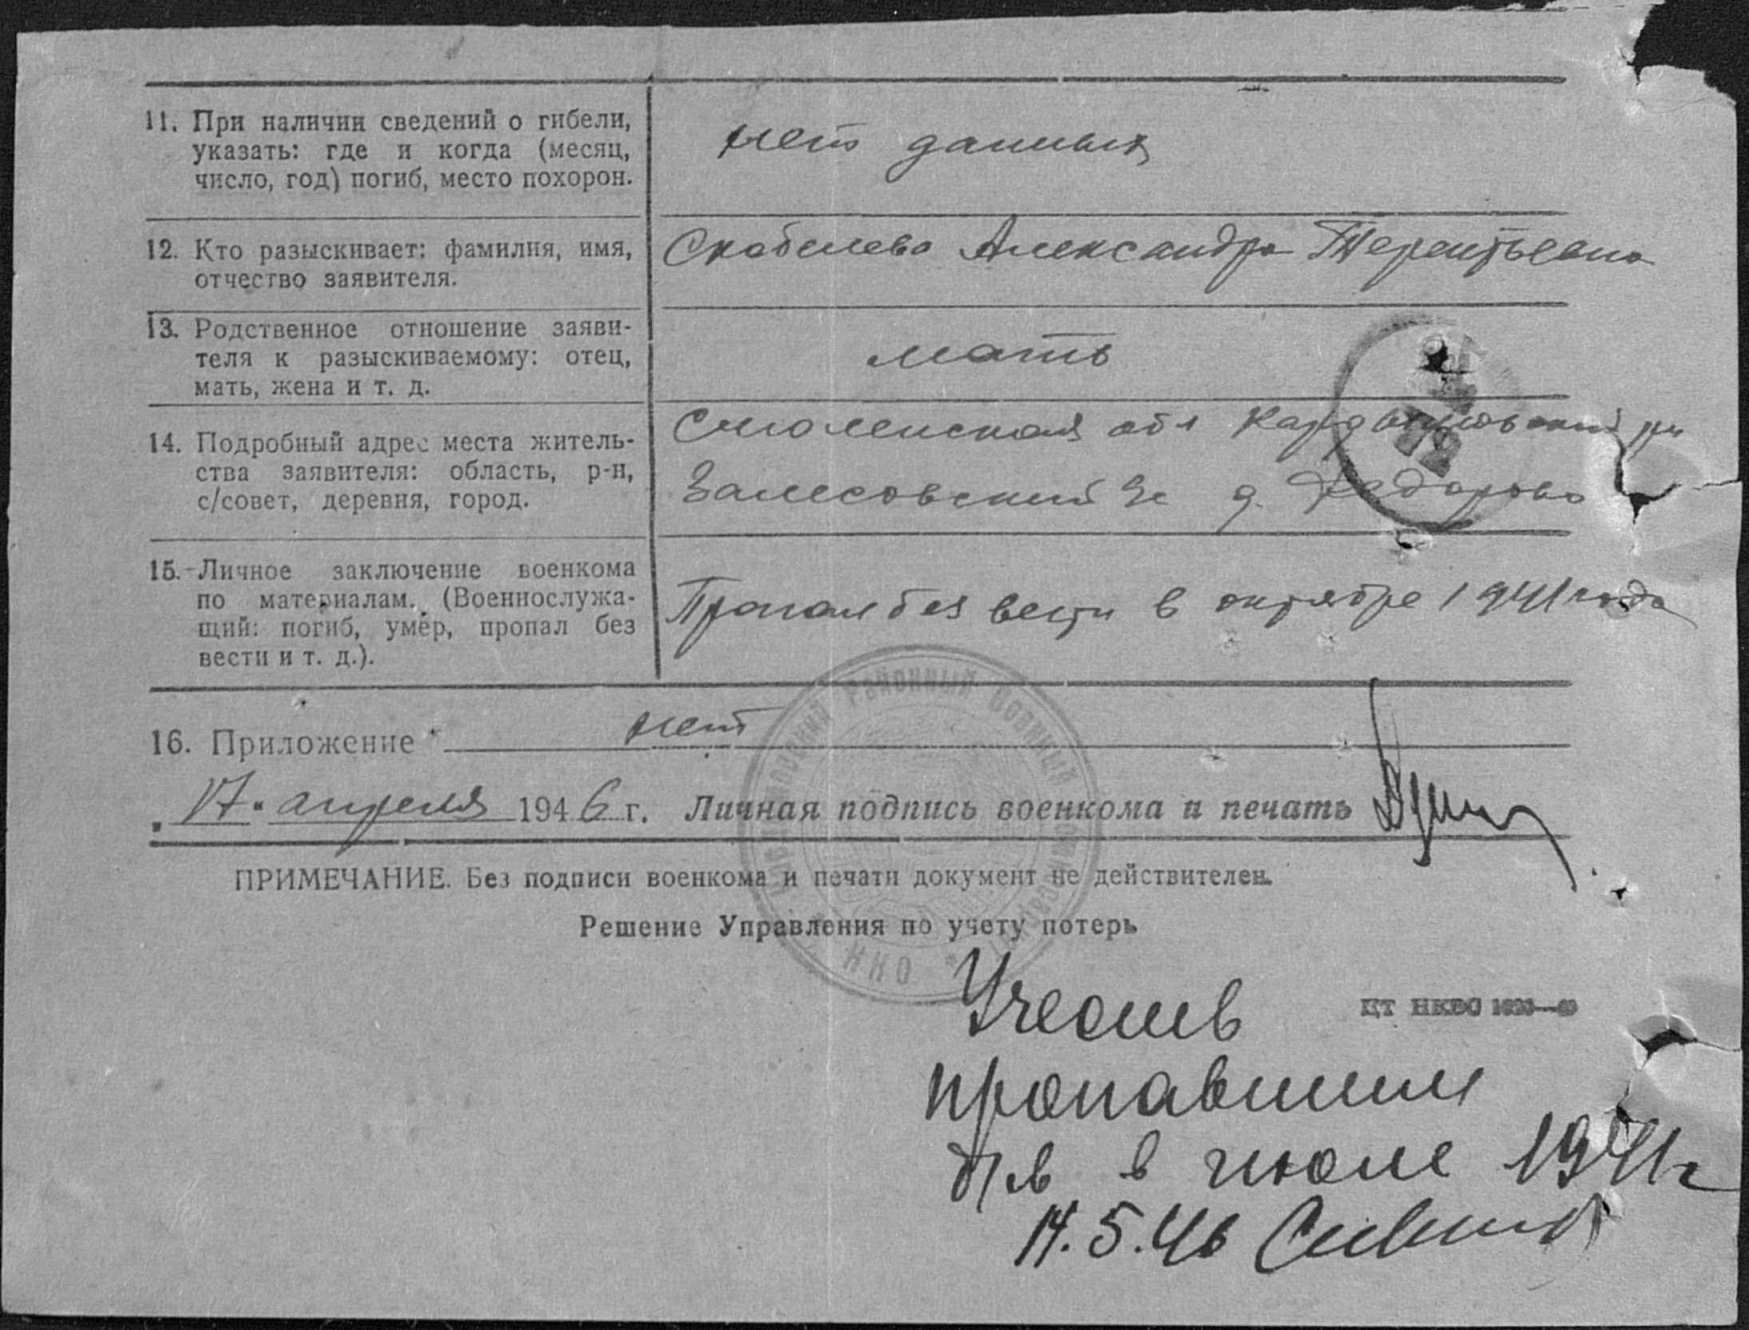 11. При наличии сведений о гибели,
указать: где и когда (месяц,
число, год) погиб, место похорон.
нет данных
12. Кто разыскивает: фамилия, имя,
отчество заявителя.
Скобелева Александра Терентьевна
13. Родственное отношение заяви-
теля к разыскиваемому: отец,
мать, жена и т. д.
мать
14. Подробный адрес места житель-
ства заявителя: область, р-н,
с/совет, деревня, город.
Смоленская обл Кардымовский рн
Залесовский д. Федорово
15. Личное заключение военкома
по материалам. (Военнослужа-
щий: погиб, умер, пропал без
вести и т. д.).
Пропал без вести в октябре 1941 года
16. Приложение нет
"17" апреля 1946 г. Личная подпись военкома и печать
ПРИМЕЧАНИЕ. Без подписи военкома и печати документ не действителен.
Решение Управления по учету потерь
районный военный
НКО
ЦТ НКВС
Учесть
пропавшим
б/в в июле 1941 г
14.5.46